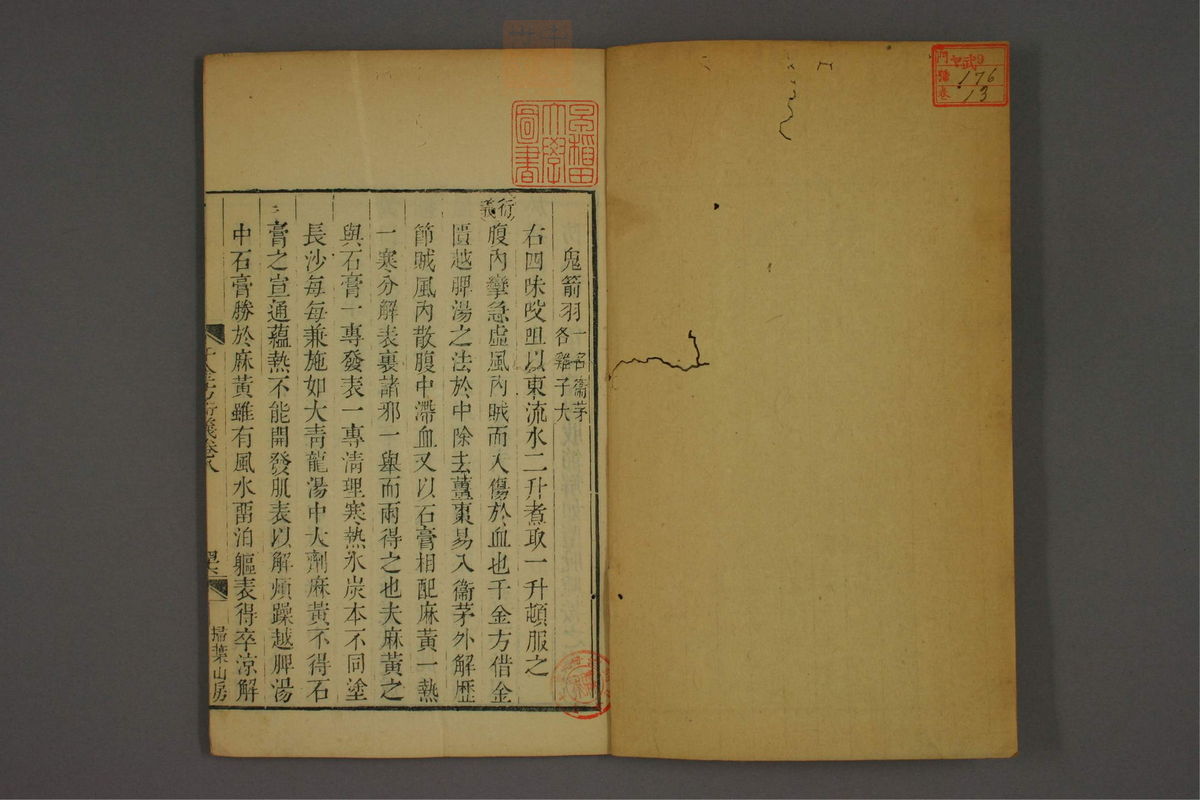 鬼箭羽一名衞茅各雞子大
右四味㕮咀以東流水二升煮取一升頓服之
衍義
腹內攣急虛風內賊而入傷於血也千金方借金
匱越脾湯之法於中除去薑棗易入衞茅外解歷
節賊風內散腹中滯血又以石膏相配麻黃一熱
一寒分解表裏諸邪一舉而兩得之也夫麻黃之
與石膏一專發表一專清理寒熱氷炭本不同塗
長沙每每兼施如大青龍湯中大劑麻黃不得石
膏之宣通蘊熱不能開發肌表以解煩躁越脾湯
中石膏勝於麻黃雖有風水畱泊軀表得卒涼解
千金方衍義卷八
掃葉山房
早稲田大學圖書
門
號 176
卷 13